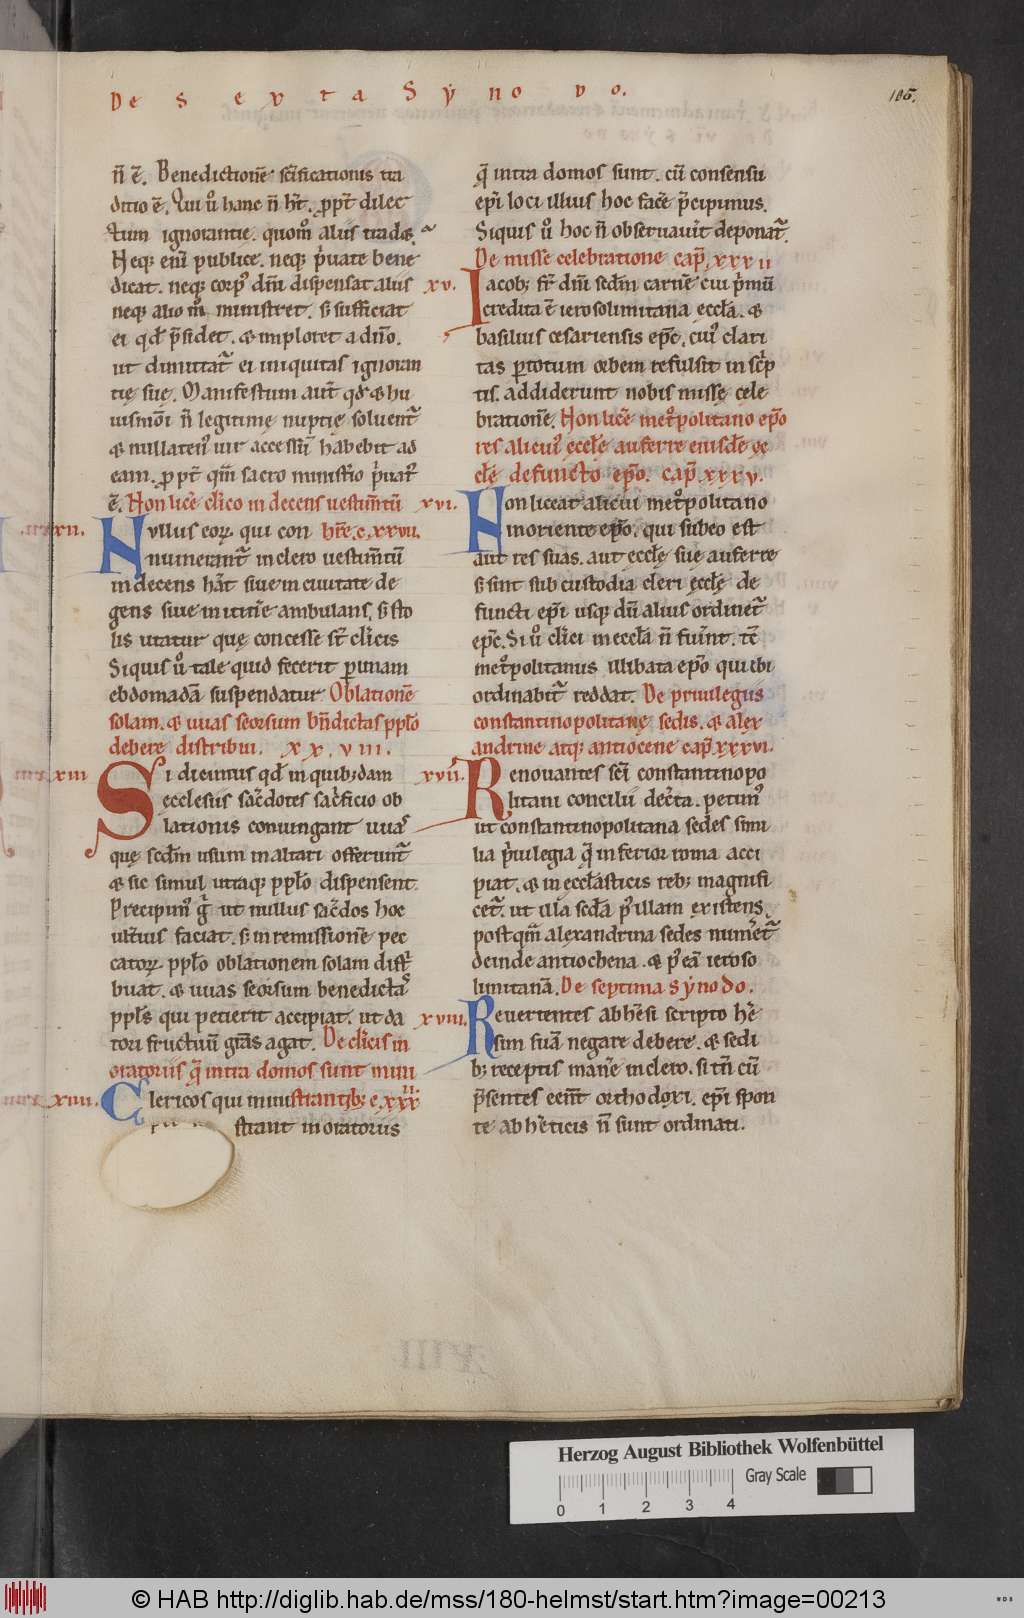 De sexta Synodo.
106.
n̄ ē. Benedictionē sc̄ificationis tra
ditio ē. Qui ū hanc n̄ h̄t. ꝓpt̄ dilec
tum ignorantię. quom̄ aliis tradet.
Neq; enī publice. neq; p̄uate bene
dicat. neq; corp᾽ dn̄i dispensat aliis
neq; alio m̄ ministret. s; sufficiat
ei qd̄ p̄sidet. & imploret a dn̄o.
ut dimittat᷑ ei iniquitas ignoran
tię suę. Manifestum aut̄ qd̄ & hu
iusmōi n̄ legitimę nuptię soluent᷑
& nullaten᾽ uir accessū habebit ad
eam. ꝓpt̄ quā sacro ministīo p̄uat᾽
ē. Non licē clīco indecens uestim̄tū
xii.
Nullus eoꝝ qui con hr̄e. c. xxvii.
numerant᷑ in clero uestim̄tū
indecens hāt siue in ciuitate de
gens siue in itinē ambulans, s; sto
lis utatur quę concesse sт̄ cl̄icis
Siquis ū tale quid fecerit p unam
ebdomadā suspendatur Oblationē
solam. & uuas seorsum bn̄dictas ppl̄o
debere distribui. xx. viii.
xiii
Si dicimus qd̄ in quib;dam
ęcclesiis sac̄dotes sac̄ficio ob
lationis coniungant uuas
que sedm̄ usum in altari offerunt᷑
& sic simul utraq; ppl̄o dispensent.
Precipim᾽ g̊ ut nullus sac̄dos hoc
ult̄ius faciat. s; in remissionē pec
catoꝝ ppl̄o oblationem solam dist᷑
buat. & uuas seorsum benedictas
ppl̄s qui petierit accipiat. ut da
tori fructuū gr̄as agat. De cl̄icis in
oratoriis q̄ intra domos sunt mini
xiiii.
Clericos qui ministrantib; c. xxxii.
strant in oratoriis
q̄ intra domos sunt. cū consensu
epi loci illius hoc facē p̄cipimus.
Siquis ū hoc n̄ obseruauīt deponat᷑.
De misse celebratione cap̄. xxxii
xv.
Iacob; fr̄ dn̄i sedm̄ carnē cui p̄mū
credita ē ierosolimitana ęccl̄a. &
basilius cesariensis ep̄c. cui᾽ clari
tas p totum orbem refulsit in sc̄p
tis. addiderunt nobis misse cele
brationē. Non licē met̄politano ep̄o
res alicui᾽ ęccl̄ę auferre eiusdē ęc
cl̄ę defuncto ep̄o. cap̄. xxxv.
xvi.
Non liceat alicui met̄politano
moriente ep̄o. qui subeo est
aut res suas. aut eccl̄ę suę auferre
s; sint sub custodia cleri eccl̄ę de
functi ep̄i usq; dū alius ordinet᷑
ep̄c. Si ū cl̄ici in eccl̄a n̄ fuīnt. tc̄
met̄politanus illibata ep̄o qui ibi
ordinabit᷑ reddat. De priuilegiis
constantinopolitanę sedis. & alex
andrine atq; antiocene cap̄. xxxvi.
xvii.
Renouantes sc̄i constantinopo
litani concilii decr̄ta. petim᾽
ut constantinopolitana sedes simi
lia p̄uilegia q̄ inferior roma acci
piat. & in ęccl̄asticis reb; magnifi
cet᷑. ut illa secd̄a p᾽ illam existens.
postqm̄ alexandrina sedes num̄et᷑
deinde antiochena. & p᾽ eā ieroso
limitanā. De septima synodo.
xviii.
Reuertentes ab h̄esi scripto h̄e
sim suā negare debere. & sedi
b; receptis manē in clero. si tn̄ cū
p̄sentes eēnt orthodoxi. ep̄i spon
te ab h̄eticis n̄ sunt ordinati.
Herzog August Bibliothek Wolfenbüttel
Gray Scale
0 1 2 3 4
© HAB http://diglib.hab.de/mss/180-helmst/start.htm?image=00213